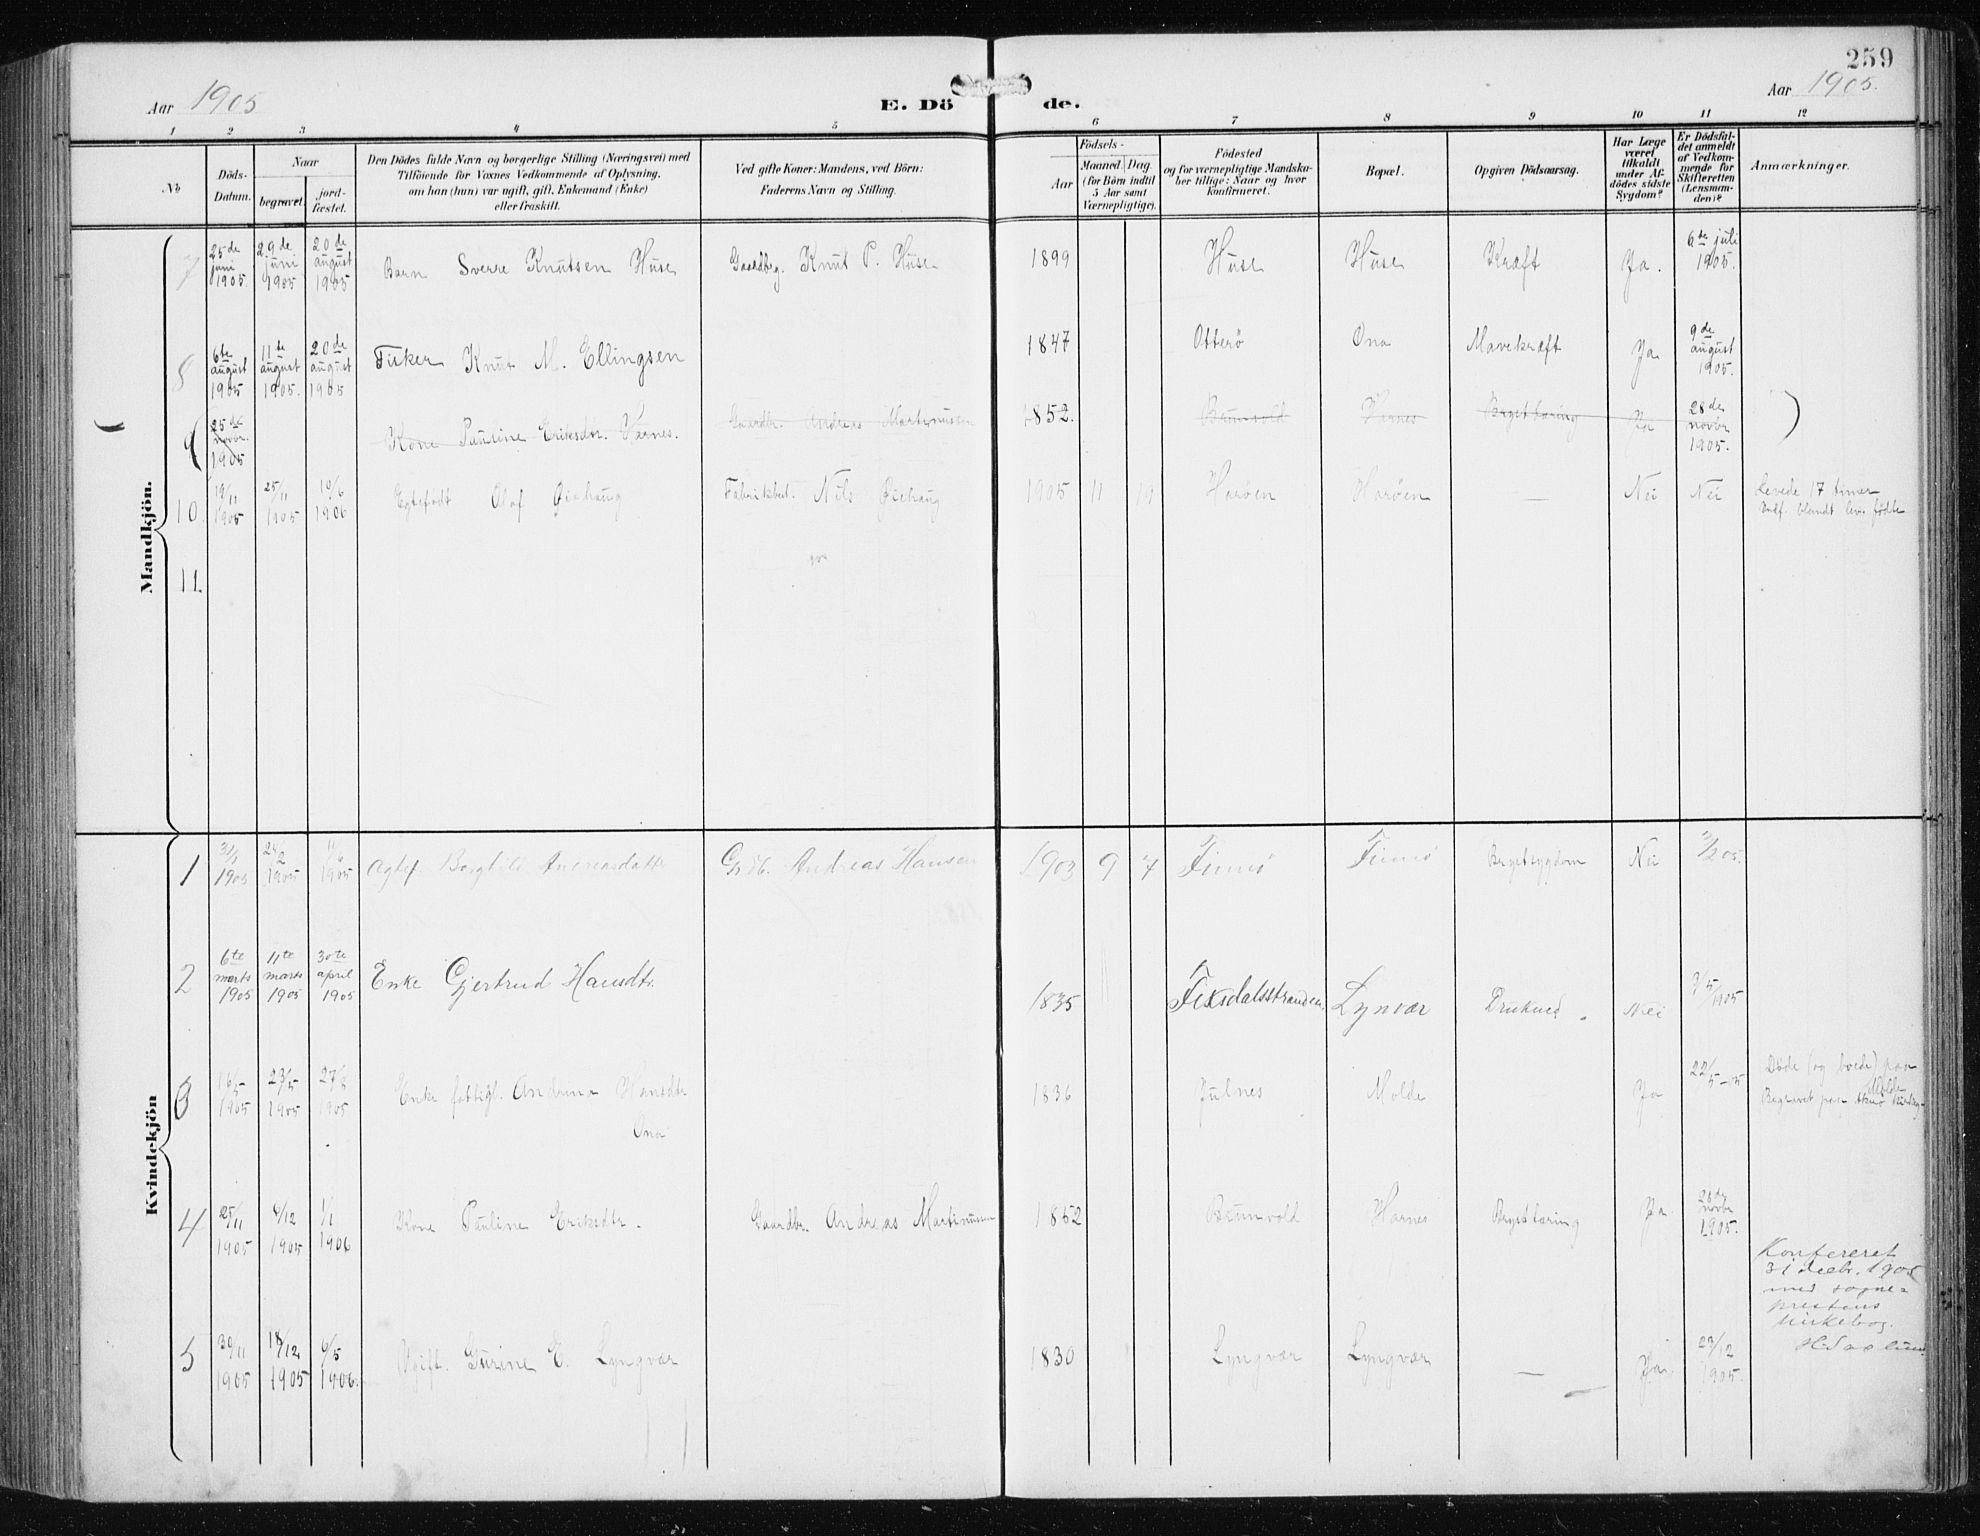 259
Aar 1905
E. Döde.
Aar 1905.
1 2 3 4 5 6 7 8 9 10 11 12
No
Döds-Datum.
Naar
begravet.
jordfæstet.
Den Dödes fulde Navn og borgerlige Stilling (Næringsvei) med
Tilföiende for Voxnes Vedkommende af Oplysning,
om han (hun) var ugift, gift, Enkemand (Enke)
eller fraskilt.
Ved gifte Koner: Mandens, ved Börn:
Faderens Navn og Stilling.
Födsels-
Aar
Maaned. Dag
(for Börn indtil
5 Aar samt
Værnepligtige).
Födested
og for værnepligtige Mandska-
ber tillige: Naar og hvor
konfirmeret.
Bopæl.
Opgiven Dödsaarsag.
Har Læge
været
tilkaldt
under Af-
dödes sidste
Sygdom?
Er Dödsfal-
det anmeldt
af Vedkom-
mende for
Skifteretten
(Lensman-
den)?
Anmærkninger.
Mandkjön.
7 25de juni 1905. 29de juni 1905 20de august 1905 Barn Sverre Knutsen Huse Gaardbg. Knut P. Huse 1899 Huse Huse Kræft Ja. 6te juli 1905.
8 6te august 1905 11te august 1905. 20de august 1905 Fisker Knut M. Ellingsen 1847 Otterö Ona Mavekræft Ja 9de august 1905.
9 25de novbr. 1905 Kone Pauline Eriksdtr. Harnes. Gaardbr. Andreas Martinussen 1852. Brunvold Harnes Brysttæring Ja 28de novbr 1905.
10. 19/11 1905 25/11 1905 10/6 1906 Egtefødt Olaf Øiehaug Fabrikbest. Nils Øiehaug 1905 11 19 Harøen Harøen — Nei Nei Levede 17 timer
Indf. blandt lev. fødte
11
Kvindekjön
1 31/1 1905 24/2 1905 1905 Ægtef. Borghild Andreasdatt. Grdb. Andreas Hansen 1903 9 4 Finnö Finnö Brystsygdom Nei 3/2 05.
2 6te marts 1905 11te marts 1905 30te april 1905 Enke Gjertrud Hansdtr. 1835 Fixdalsstranden Lynvær Druknet. Nei 3/5 1905
3 16/5 1905 23/5 1905 27/8 1905 Enke fattigl. Andrina Hansdtr Ona 1836 Julnes Molde — Ja 22/5-05 Døde (og boede) paa Molde
Begravet paa
4 25/11 1905 4/12 1905 1/1 1906 Kone Pauline Eriksdtr. Gaardbr. Andreas Martinussen 1852 Brunvold Harnes Brysttæring Ja. 28de novbr 1905.
Konfereret
31 decbr. 1905
med sogne-
prestens
kirkebog.
5 30/11 1905 18/12 1905 6/5 1906. Ugift. Gurine E. Lyngvær 1830 Lyngvær Lyngvær — Ja. 23/12 1905.